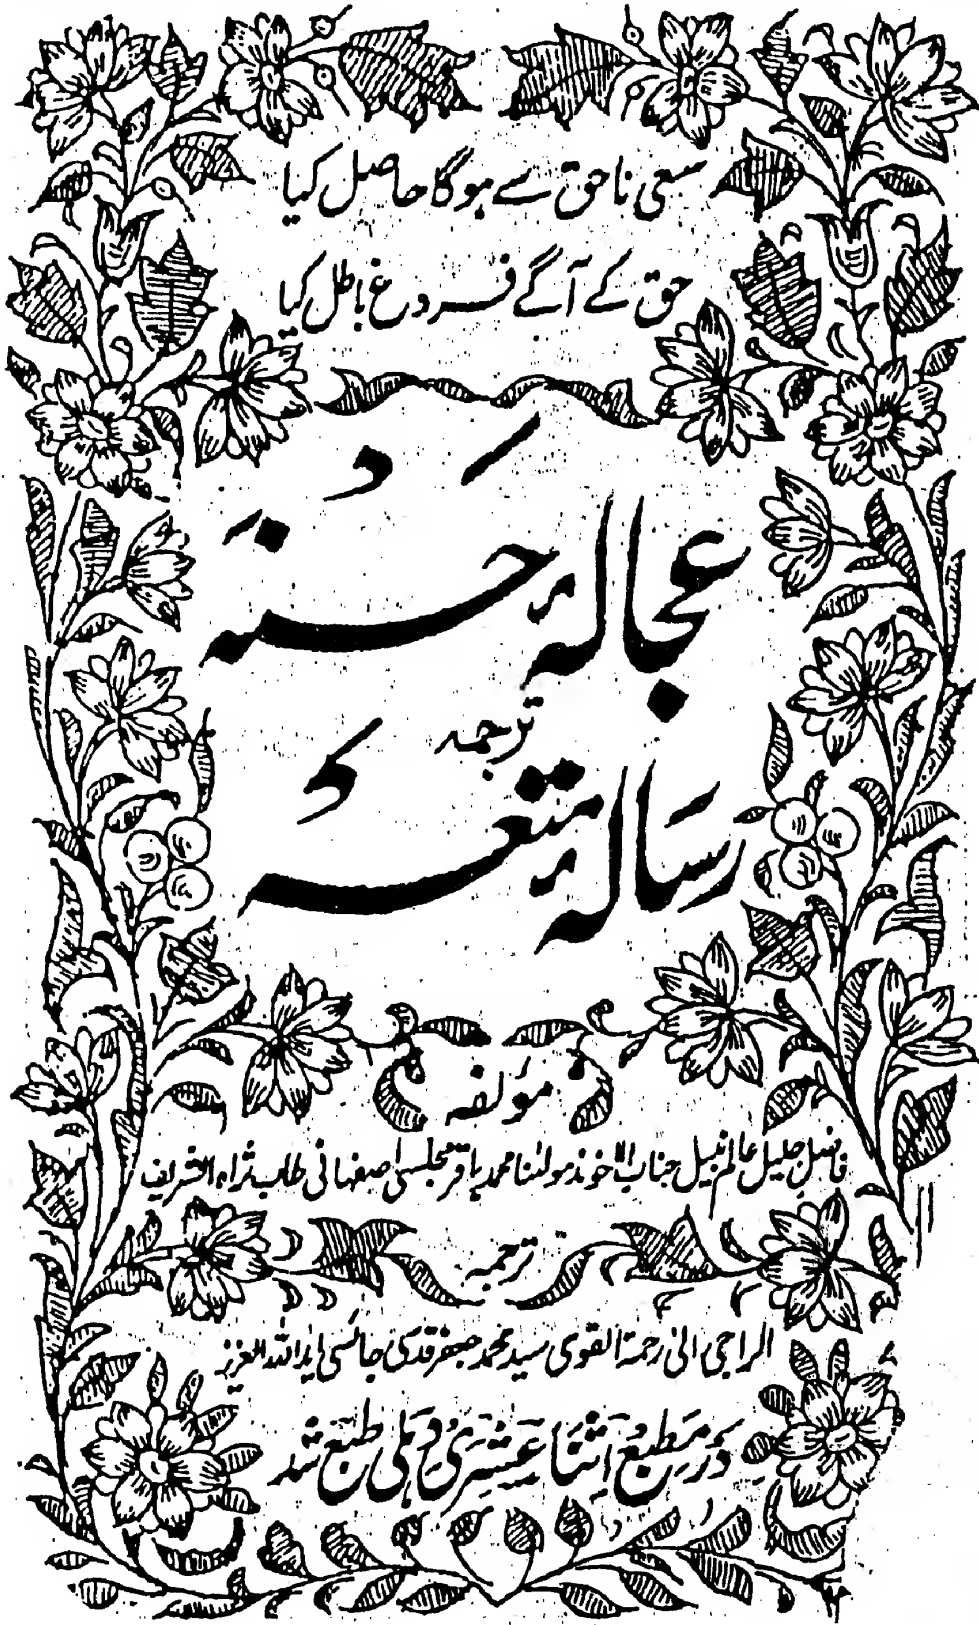 سعی ناحق سے ہوگا حاصل کیا
حق کے آگے فروغ باطل کیا
عجالہ حسنہ
ترجمہ
رسالہ متعہ
مؤلفہ
فاضل جلیل عالم نبیل جناب آخوند مولٰنا محمد باقر مجلسی اصفہانی طاب ثراہ الشریف
ترجمہ
الراجی الی رحمۃ القوی سید محمد جعفر قدسی جائسی ایدہ اللہ العزیز
دَر مَطبَع اثنا عَشَری دہلی طبع شد